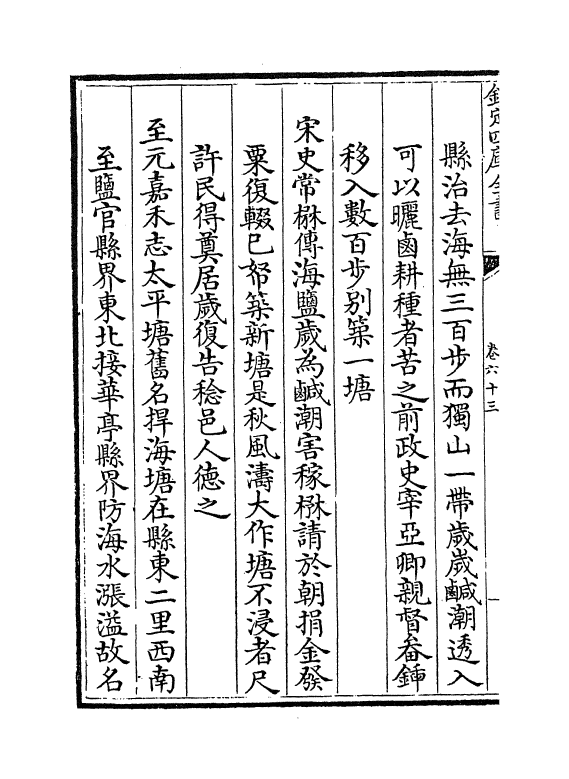 欽定四庫全書
卷六十三
縣治去海無三百步而獨山一帶歲歲鹹潮透入
可以曬鹵耕種者苦之前政史宰亞卿親督畚鍤
移入數百步别築一塘
宋史常楙傳海鹽歲為鹹潮害稼楙請於朝捐金發
粟復輟已帑築新塘是秋風濤大作塘不浸者尺
許民得奠居歲復告稔邑人徳之
至元嘉禾志太平塘舊名捍海塘在縣東二里西南
至鹽官縣界東北接華亭縣界防海水漲溢故名